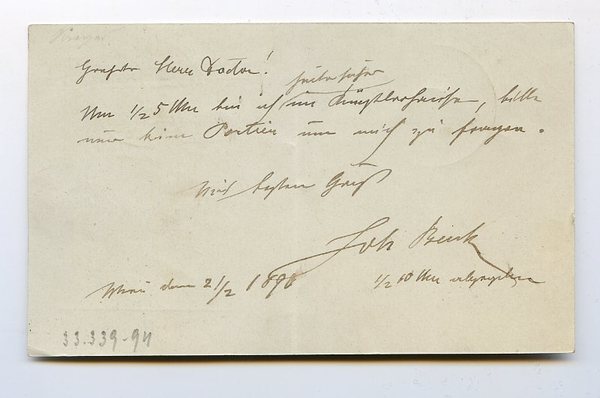 Geehrter Herr Doctor!
Um 1/2 5 Uhr bin ich im Künstlerhause, bitte
nur beim Portier um mich zu fragen.
Mit besten Gruß
Joh Benk
Wien den 21/2 1896
1/2 10 Uhr
33.339-94